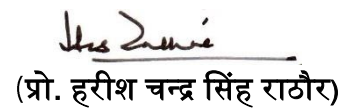 (प्रो. हरीश चन्द्र सिंह राठौर)